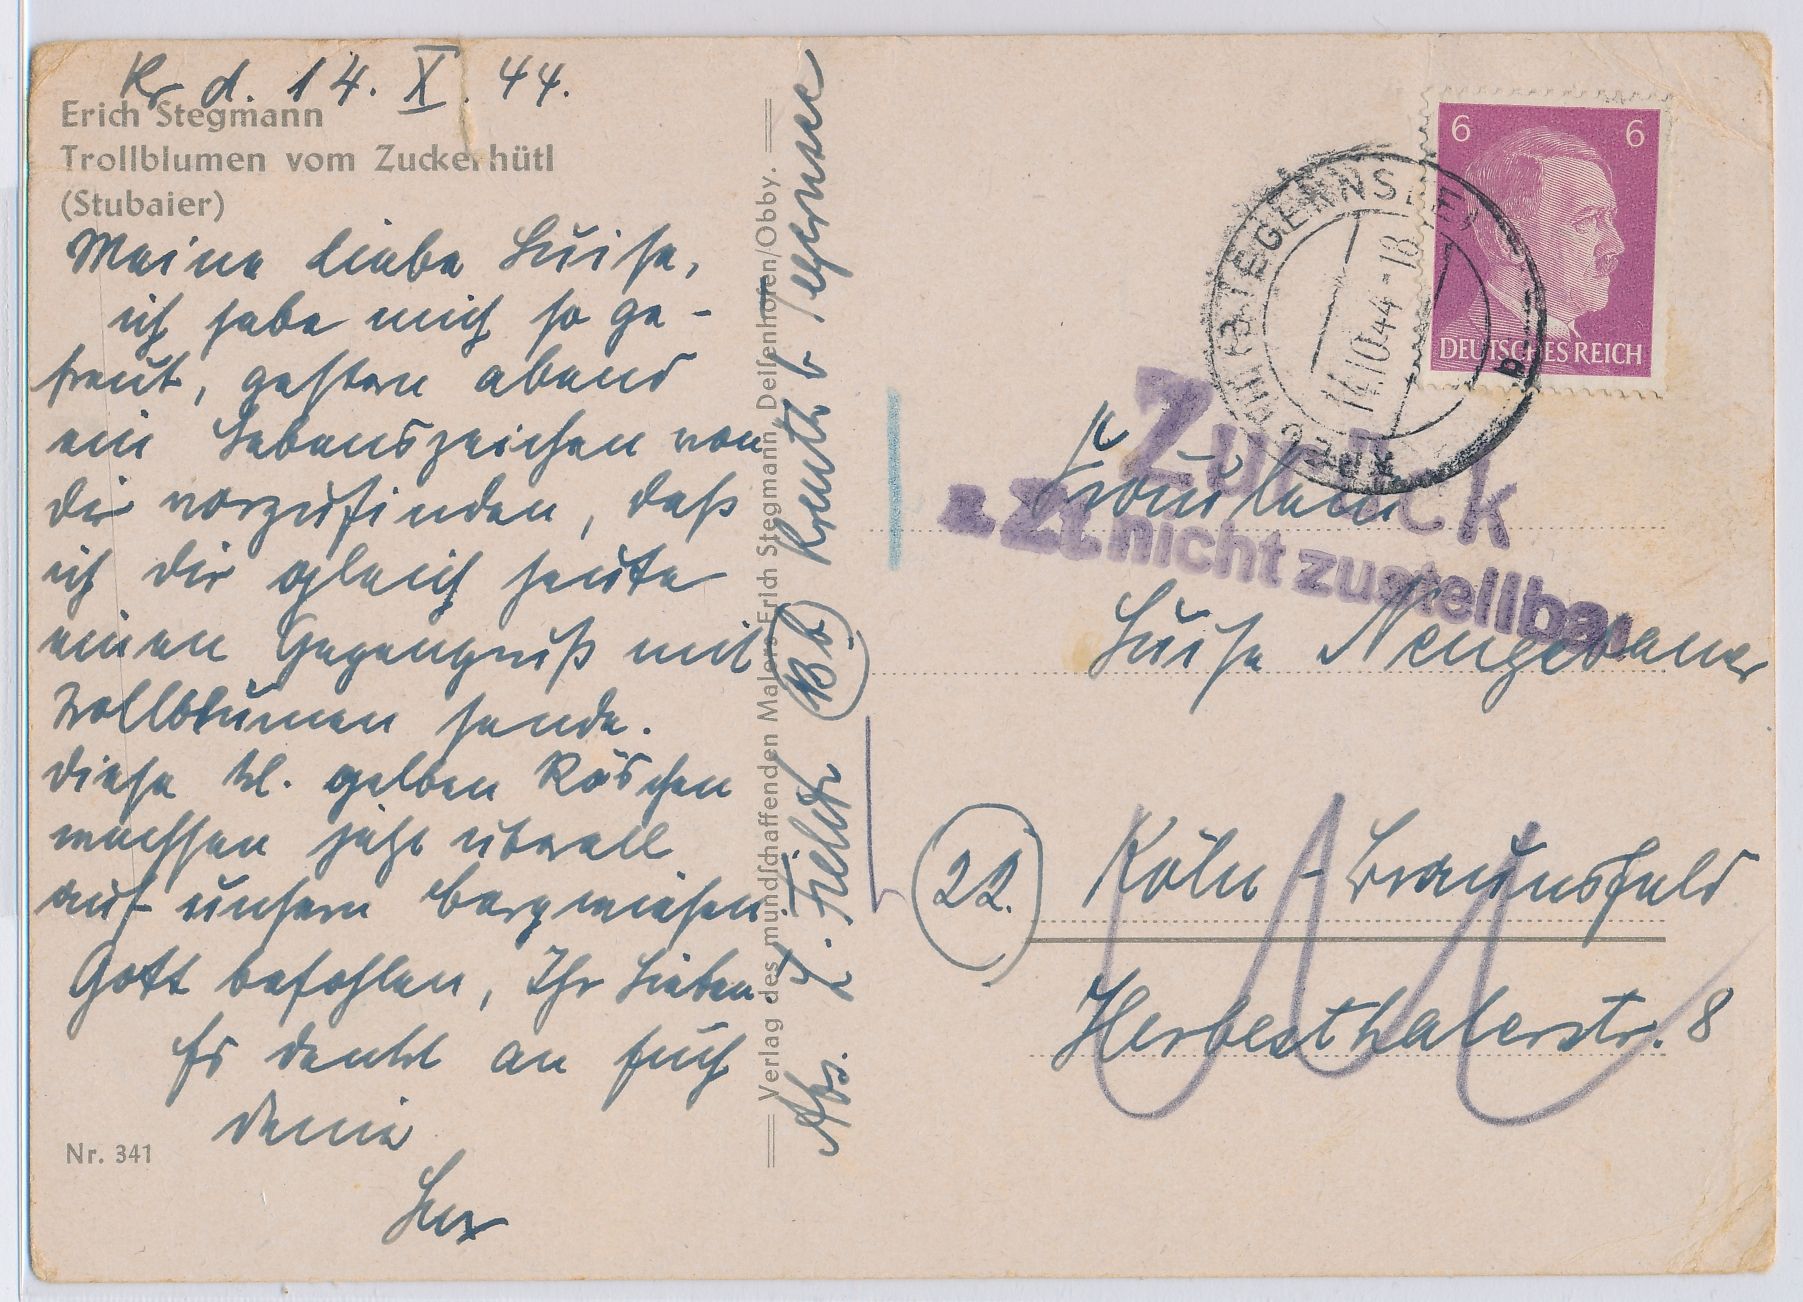 Kr d. 14. X. 44.
Erich Stegmann
Trollblumen vom Zuckerhütl
(Stubaier)
Meine liebe Luise,
ich habe mich so ge-
freut, gestern abend
ein Lebenszeichen von
Dir vorzufinden, daß
ich Dir gleich heute
einen Gegengruß mit
Trollblumen sende.
Diese kl. gelben Röschen
wachsen jetzt überall
auf unsern Bergwiesen.
Gott befohlen, Ihr Lieben
Es denkt an Euch
Deine
Nr. 341
Verlag des mundschaffenden Malers Erich Stegmann Deisenhofen/Obby.
Abs. Kreuth b Tegernsee
6 6
DEUTSCHES REICH
KREUTH (B. TEGERNSEE)
14.10.44-18
b
Zurück
z. Zt. nicht zustellbar
Fräulein
Luise Neugebauer
22. Köln-Braunsfeld
Herbesthalerstr. 8